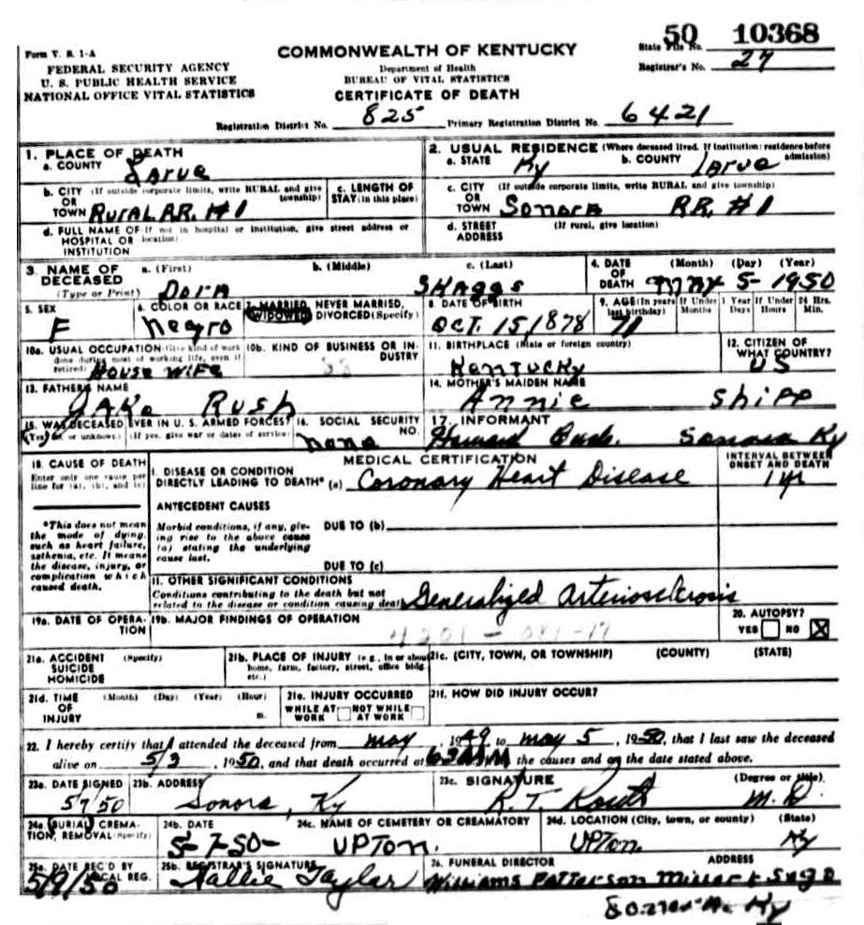 50 10368
Form V. S. 1-A
COMMONWEALTH OF KENTUCKY
State File No.
FEDERAL SECURITY AGENCY
Department of Health
Registrar's No. 27
U. S. PUBLIC HEALTH SERVICE
BUREAU OF VITAL STATISTICS
NATIONAL OFFICE VITAL STATISTICS
CERTIFICATE OF DEATH
Registration District No. 825 Primary Registration District No. 6421
1. PLACE OF DEATH
a. COUNTY Larue
2. USUAL RESIDENCE (Where deceased lived. If institution: residence before admission)
a. STATE Ky b. COUNTY Larue
b. CITY (If outside corporate limits, write RURAL and give township)
OR
TOWN Rural RR. #1
c. LENGTH OF
STAY (in this place)
c. CITY (If outside corporate limits, write RURAL and give township)
OR
TOWN Sonora RR. #1
d. FULL NAME OF (If not in hospital or institution, give street address or location)
HOSPITAL OR
INSTITUTION
d. STREET (If rural, give location)
ADDRESS
3. NAME OF DECEASED a. (First) b. (Middle) c. (Last)
(Type or Print) Dora Skaggs
4. DATE OF DEATH (Month) (Day) (Year)
May 5-1950
5. SEX
F
6. COLOR OR RACE
Negro
7. MARRIED, NEVER MARRIED,
WIDOWED DIVORCED (Specify)
8. DATE OF BIRTH
Oct. 15, 1878
9. AGE (In years last birthday) If Under 1 Year Months Days If Under 24 Hrs. Hours Min.
71
10a. USUAL OCCUPATION (Give kind of work done during most of working life, even if retired)
House wife
10b. KIND OF BUSINESS OR INDUSTRY
11. BIRTHPLACE (State or foreign country)
Kentucky
12. CITIZEN OF WHAT COUNTRY?
US
13. FATHER'S NAME
Jake Rush
14. MOTHER'S MAIDEN NAME
Annie Shipp
15. WAS DECEASED EVER IN U. S. ARMED FORCES?
(Yes, no, or unknown) (If yes, give war or dates of service)
16. SOCIAL SECURITY NO.
none
17. INFORMANT
Howard Sonora Ky
18. CAUSE OF DEATH
Enter only one cause per line for (a), (b), and (c)
MEDICAL CERTIFICATION
INTERVAL BETWEEN ONSET AND DEATH
I. DISEASE OR CONDITION
DIRECTLY LEADING TO DEATH* (a) Coronary Heart Disease 1 yr
ANTECEDENT CAUSES
*This does not mean the mode of dying, such as heart failure, asthenia, etc. It means the disease, injury, or complication which caused death.
Morbid conditions, if any, giving rise to the above cause (a) stating the underlying cause last.
DUE TO (b)
DUE TO (c)
II. OTHER SIGNIFICANT CONDITIONS
Conditions contributing to the death but not related to the disease or condition causing death
Generalized Arteriosclerosis
19a. DATE OF OPERATION
19b. MAJOR FINDINGS OF OPERATION
20. AUTOPSY?
YES NO X
21a. ACCIDENT (Specify)
SUICIDE
HOMICIDE
21b. PLACE OF INJURY (e.g., in or about home, farm, factory, street, office bldg. etc.)
21c. (CITY, TOWN, OR TOWNSHIP) (COUNTY) (STATE)
21d. TIME OF INJURY (Month) (Day) (Year) (Hour) m.
21e. INJURY OCCURRED
WHILE AT WORK NOT WHILE AT WORK
21f. HOW DID INJURY OCCUR?
22. I hereby certify that I attended the deceased from May, 1949 to May 5, 1950, that I last saw the deceased
alive on 5/3, 1950, and that death occurred at the causes and on the date stated above.
23a. DATE SIGNED
5/7/50
23b. ADDRESS
Sonora, Ky
23c. SIGNATURE (Degree or title)
R. T. M. D.
24a. BURIAL, CREMATION, REMOVAL (Specify)
24b. DATE
5-7-50-
24c. NAME OF CEMETERY OR CREAMATORY
Upton.
24d. LOCATION (City, town, or county) (State)
Upton. Ky
25a. DATE REC'D BY LOCAL REG.
5/9/50
25b. REGISTRAR'S SIGNATURE
Hallie Taylor
26. FUNERAL DIRECTOR ADDRESS
Williams Patterson Miller &
Ky